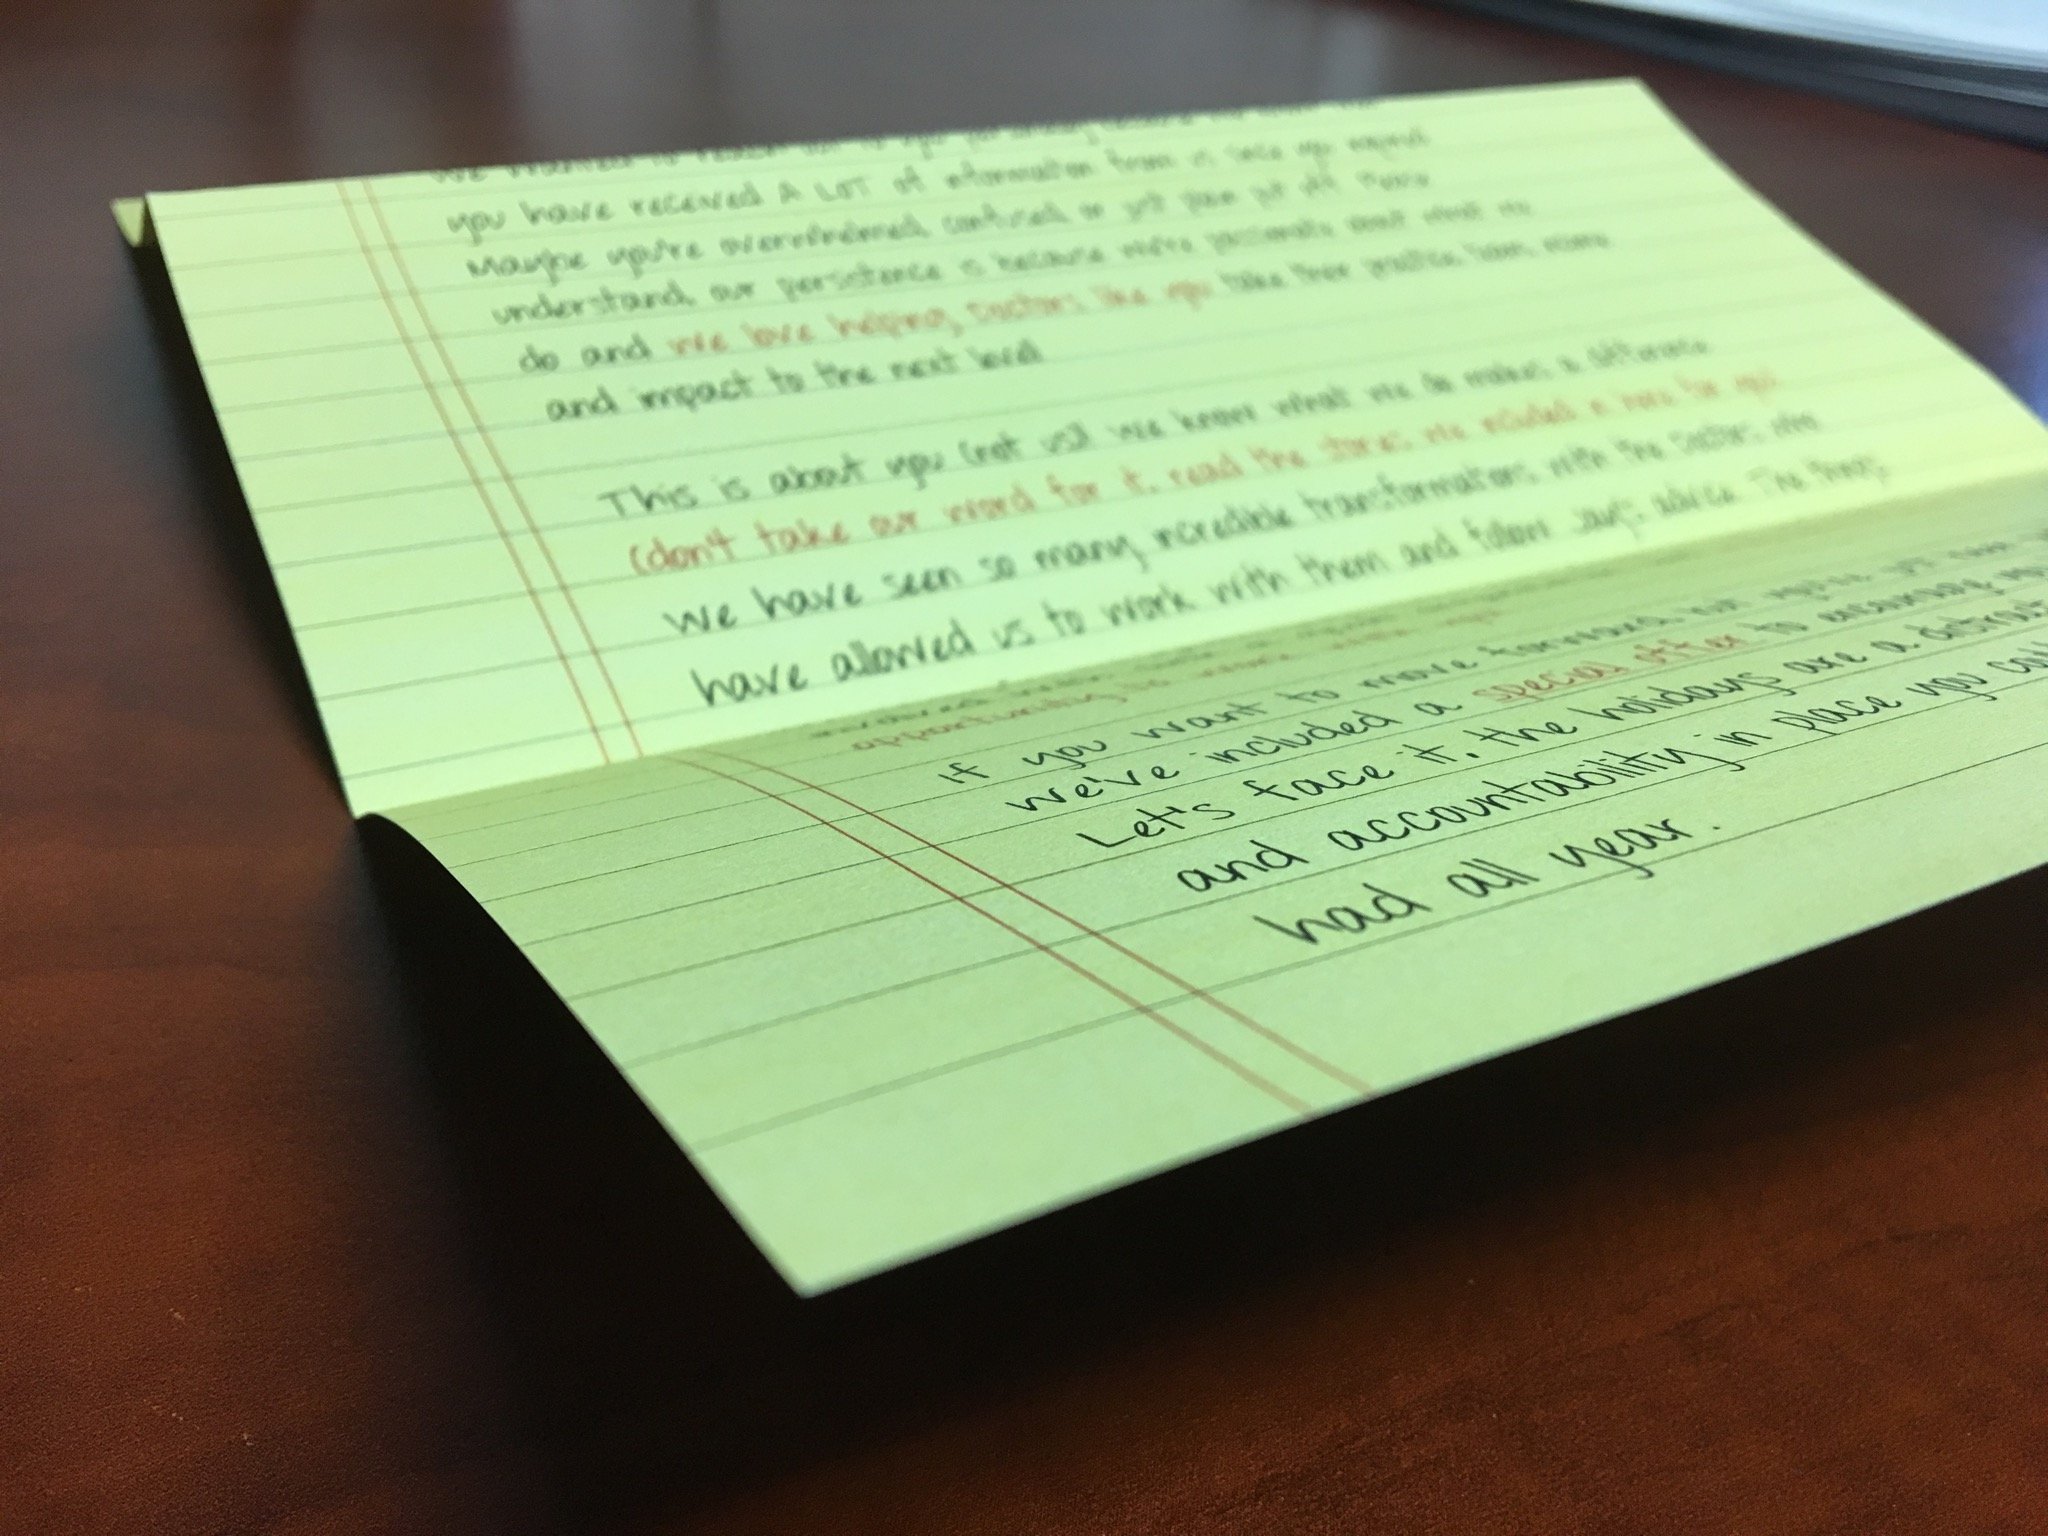 We wanted to reach out to you
you have received A LOT of information from us since you
Maybe you're overwhelmed, confused or just plain put off. Please
understand, our persistence is because we're passionate about what we
do and we love helping doctors like you take their practice, team,
and impact to the next level.
This is about you (not us)! We know what we do makes a difference
(don't take our word for it, read the stories we included in here for you)
We have seen so many incredible transformations with the doctors who
have allowed us to work with them and follow advice. The things
opportunity is
If you want to move forward, but
we've included a special offer to encourage
Let's face it, the holidays are a
and accountability in place you
had all year.